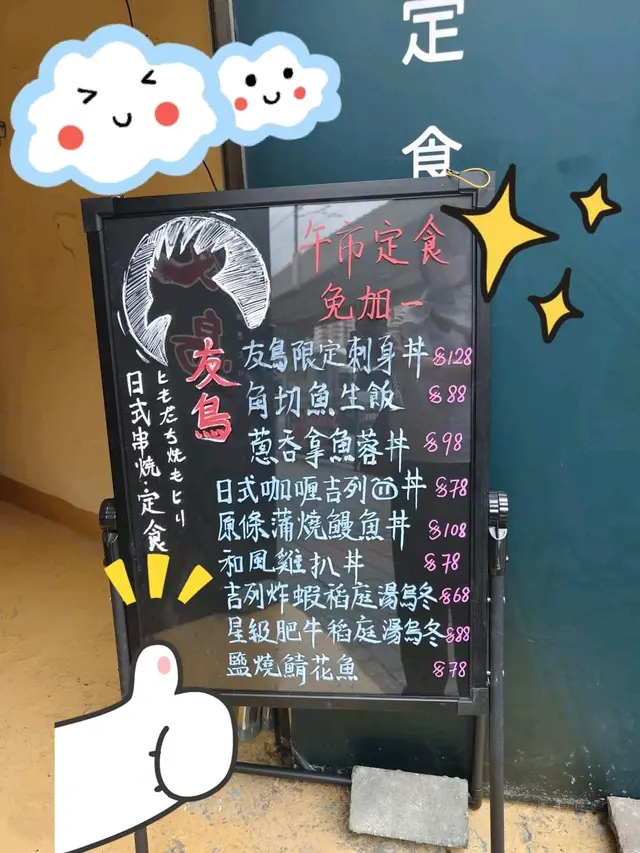 定食
午市定食
免加一
友鳥
ともだち焼もとり
日式串燒·定食
友鳥限定刺身丼 $128
角切魚生飯 $88
蔥吞拿魚蓉丼 $98
日式咖喱吉列丼 $78
原條蒲燒鰻魚丼 $108
和風雞扒丼 $78
吉列炸蝦稻庭湯烏冬 $68
星級肥牛稻庭湯烏冬 $88
鹽燒鯖花魚 $78